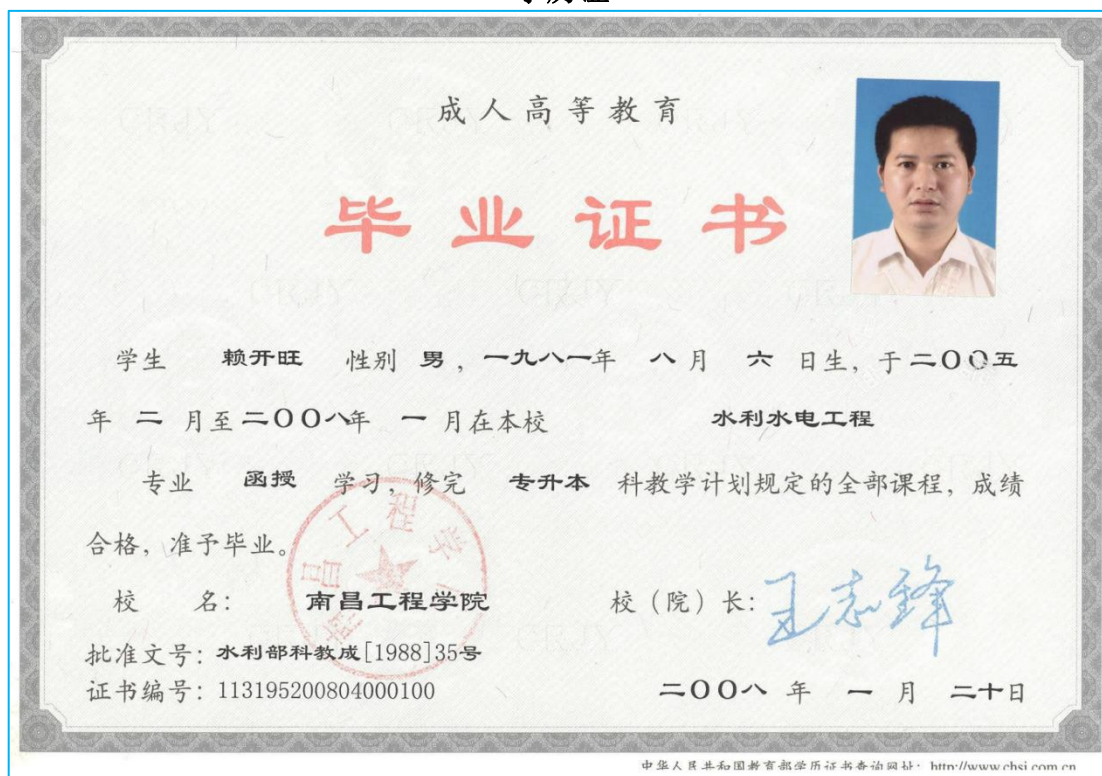 成人高等教育
毕业证书
学生 赖开旺 性别 男，一九八一年 八月 六 日生，于二〇〇五
年 二 月至二〇〇八年 一 月在本校 水利水电工程
专业 函授 学习，修完 专升本 科教学计划规定的全部课程，成绩
合格，准予毕业。
校 名： 南昌工程学院 校（院）长：王志锋
批准文号：水利部科教成[1988]35号
证书编号：113195200804000100 二〇〇八 年 一 月 二十日
中华人民共和国教育部学历证书查询网址：http://www.chsi.com.cn